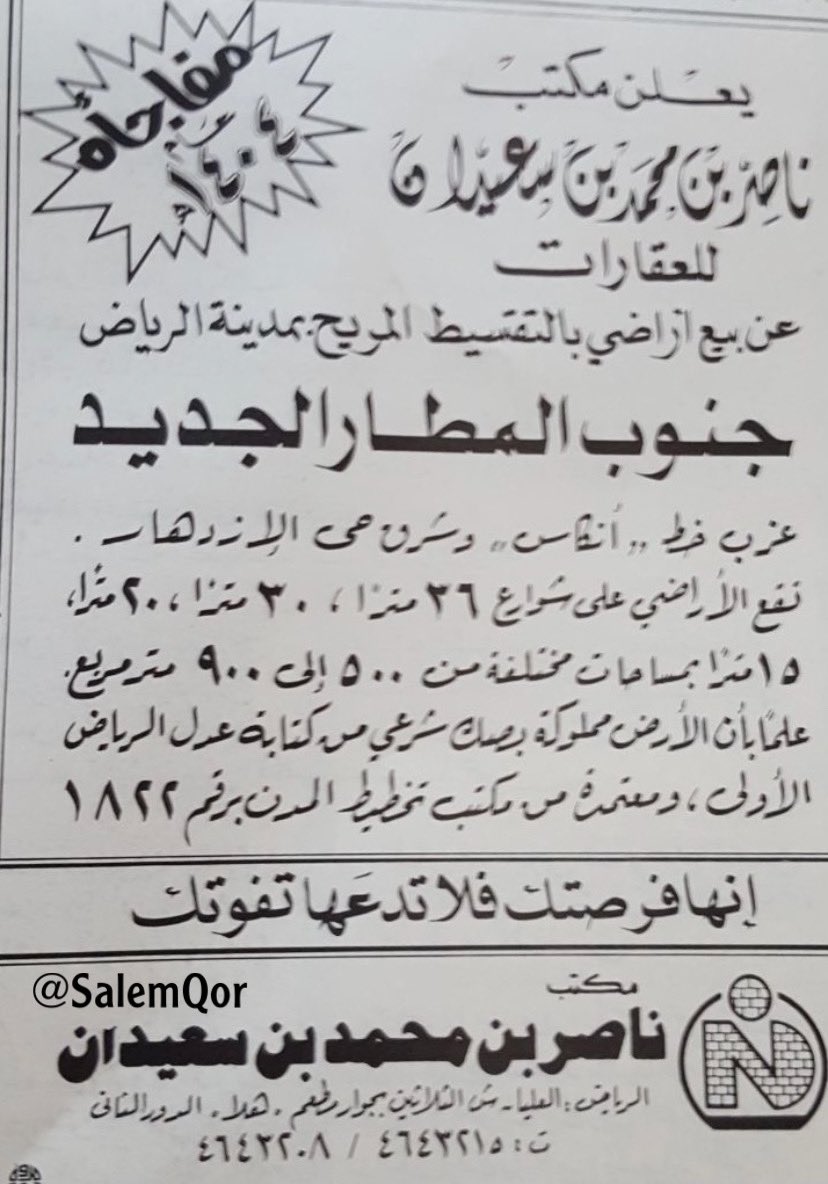 مفاجأة
١٤٠٤هـ
يعلن مكتب
ناصر بن محمد بن سعيدان
للعقارات
عن بيع اراضي بالتقسيط المريح بمدينة الرياض
جنوب المطار الجديد
غرب خط "أنكاس" وشرق حى الإزدهار .
تقع الأراضي على شوارع ٣٦ مترًا ، ٣٠ مترًا ، ٢٠ مترًا،
١٥ مترًا بمساحات مختلفة من ٥٠٠ إلى ٩٠٠ متر مربع.
علمًا بأن الأرض مملوكة بصك شرعي من كتابة عدل الرياض
الأولى ، ومعتمدة من مكتب تخطيط المدن برقم ١٨٢٢
إنها فرصتك فلا تدعها تفوتك
@SalemQor
مكتب
ناصر بن محمد بن سعيدان
الرياض : العليا - ش الثلاثين بجوار مطعم ، هلا ، الدور الثانى
ت : ٤٦٤٣٢١٥ / ٤٦٤٣٢٠٨